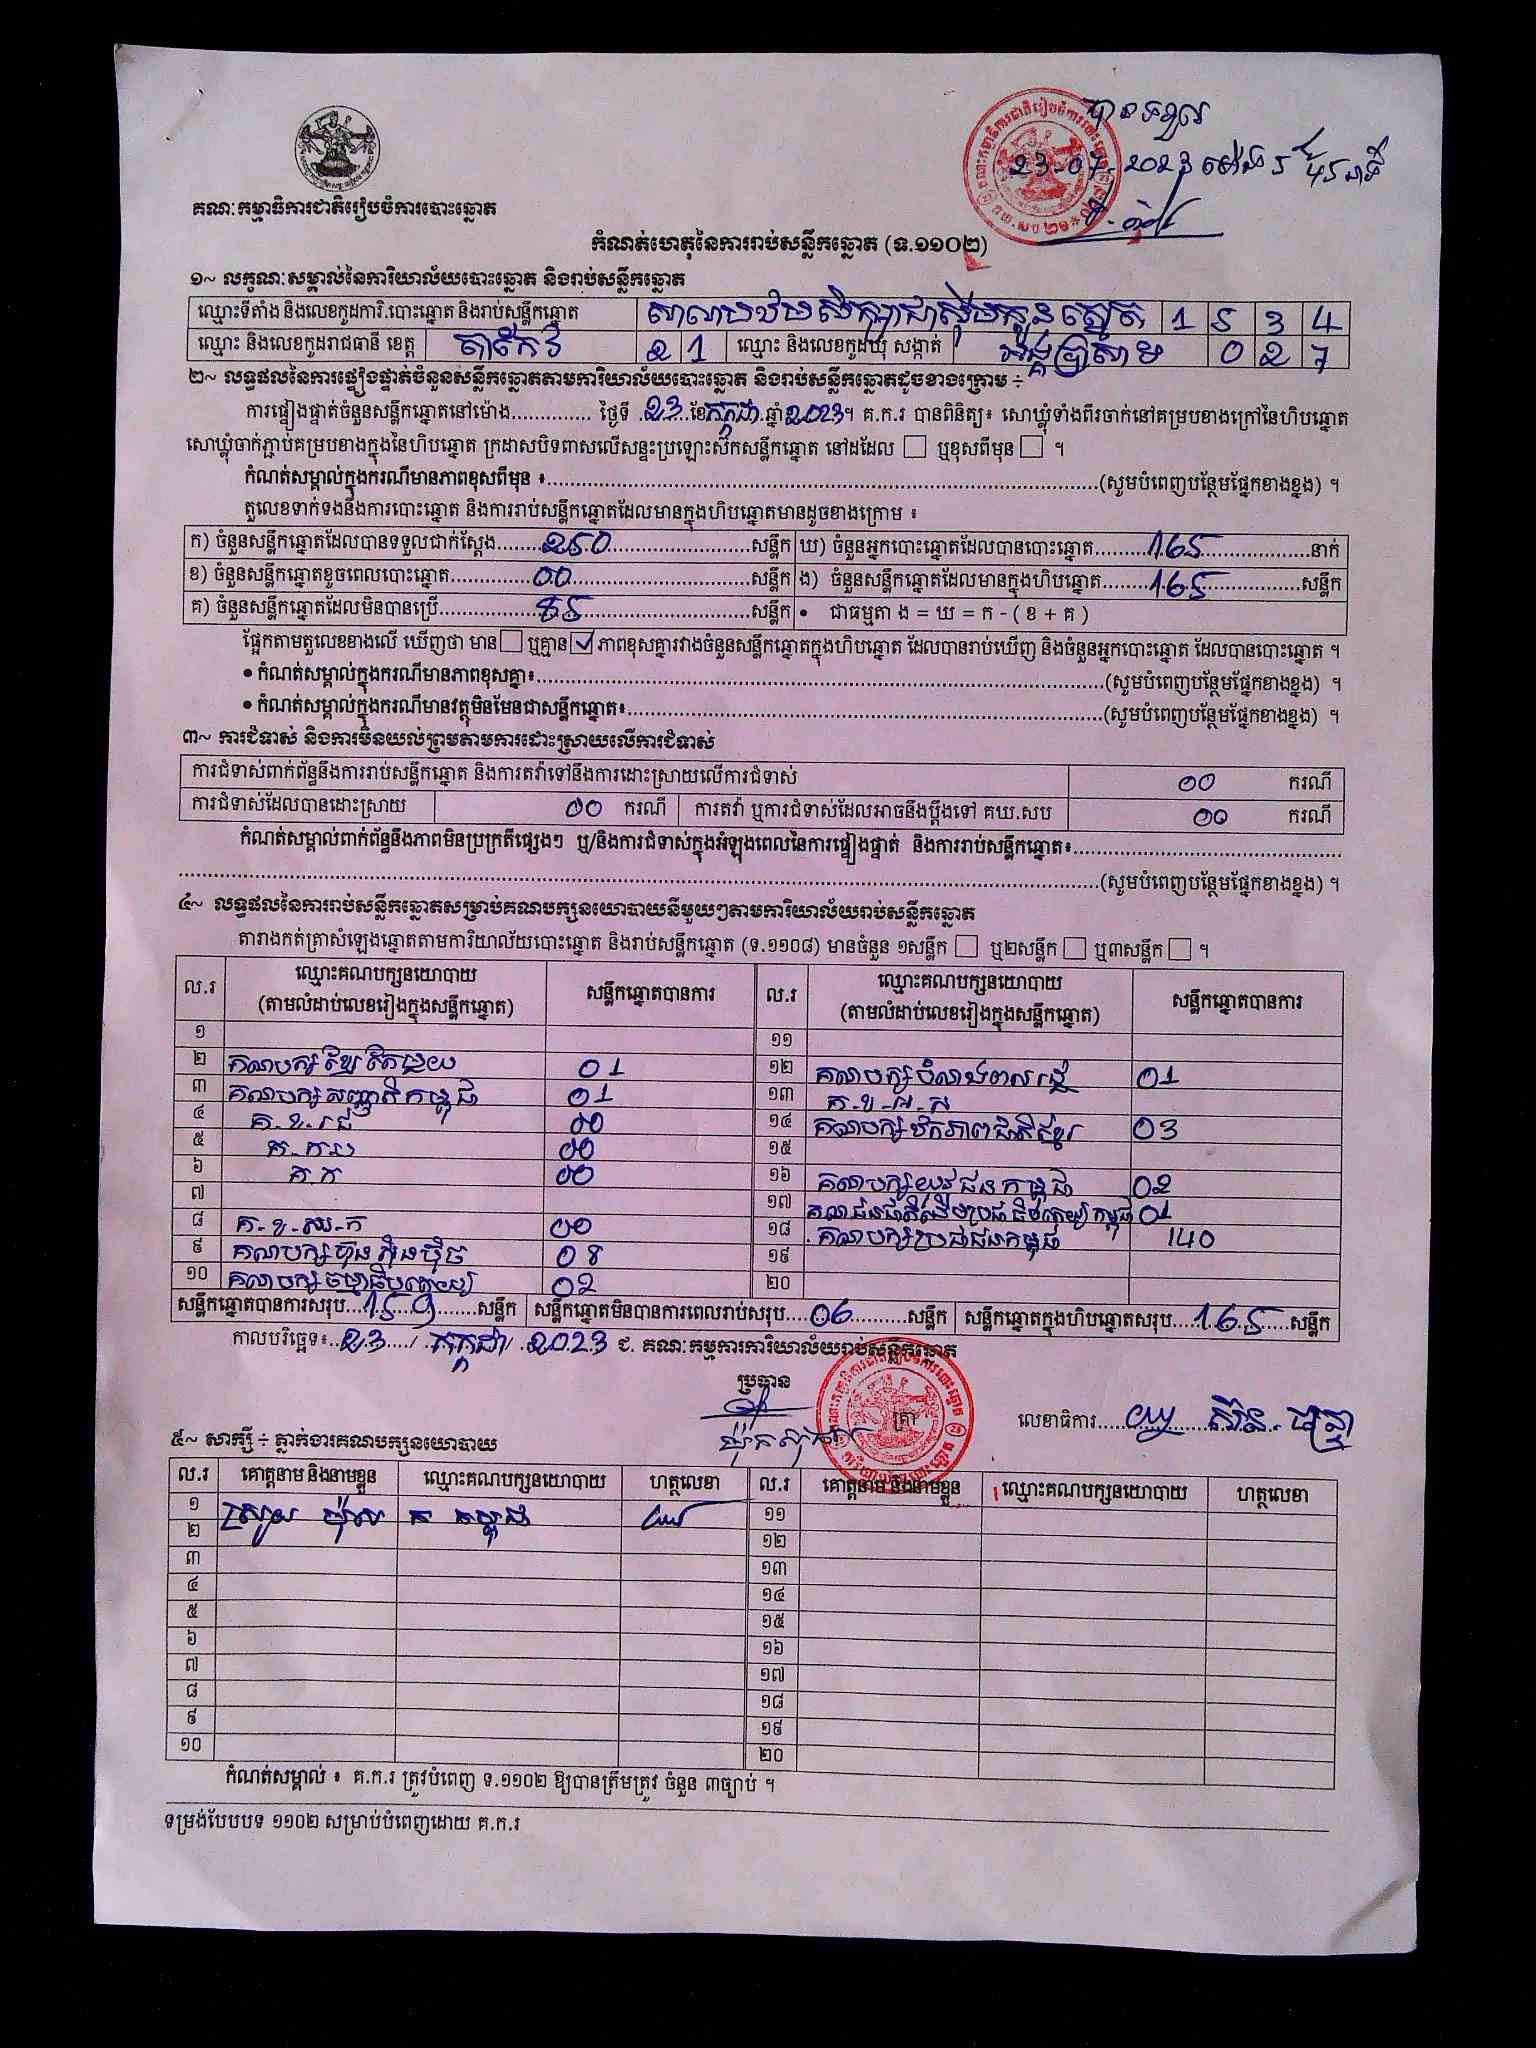 គណៈកម្មាធិការជាតិរៀបចំការបោះឆ្នោត
បានទទួល
23-07-2023
កំណត់ហេតុនៃការរាប់សន្លឹកឆ្នោត (ទ.១១០២)
១~ លក្ខណៈសម្គាល់នៃការិយាល័យបោះឆ្នោត និងរាប់សន្លឹកឆ្នោត
ឈ្មោះទីតាំង និងលេខកូដការិ.បោះឆ្នោត និងរាប់សន្លឹកឆ្នោត 1 5 3 4
ឈ្មោះ និងលេខកូដរាជធានី ខេត្ត តាកែវ 2 1 ឈ្មោះ និងលេខកូដឃុំ សង្កាត់ អង្គប្រាសាទ 0 2 7
២~ លទ្ធផលនៃការផ្ទៀងផ្ទាត់ចំនួនសន្លឹកឆ្នោតតាមការិយាល័យបោះឆ្នោត និងរាប់សន្លឹកឆ្នោតដូចខាងក្រោម ÷
ការផ្ទៀងផ្ទាត់ចំនួនសន្លឹកឆ្នោតនៅម៉ោង.............. ថ្ងៃទី 23 ខែ កក្កដា ឆ្នាំ 2023។ គ.ក.រ បានពិនិត្យ៖ សោឃ្លុំទាំងពីរចាក់នៅគម្របខាងក្រៅនៃហិបឆ្នោត
សោឃ្លុំចាក់ភ្ជាប់គម្របខាងក្នុងនៃហិបឆ្នោត ក្រដាសបិទពាសលើសន្ទះប្រឡោះស៊កសន្លឹកឆ្នោត នៅដដែល ☐ ឬខុសពីមុន ☐ ។
កំណត់សម្គាល់ក្នុងករណីមានភាពខុសពីមុន ៖..............(សូមបំពេញបន្ថែមផ្នែកខាងខ្នង) ។
តួលេខទាក់ទងនឹងការបោះឆ្នោត និងការរាប់សន្លឹកឆ្នោតដែលមានក្នុងហិបឆ្នោតមានដូចខាងក្រោម ៖
ក) ចំនួនសន្លឹកឆ្នោតដែលបានទទួលជាក់ស្តែង 250 សន្លឹក ឃ) ចំនួនអ្នកបោះឆ្នោតដែលបានបោះឆ្នោត 165 នាក់
ខ) ចំនួនសន្លឹកឆ្នោតខូចពេលបោះឆ្នោត 00 សន្លឹក ង) ចំនួនសន្លឹកឆ្នោតដែលមានក្នុងហិបឆ្នោត 165 សន្លឹក
គ) ចំនួនសន្លឹកឆ្នោតដែលមិនបានប្រើ 85 សន្លឹក • ជាធម្មតា ង = ឃ = ក - ( ខ + គ )
ផ្អែកតាមតួលេខខាងលើ ឃើញថា មាន ☐ ឬគ្មាន ☑ ភាពខុសគ្នារវាងចំនួនសន្លឹកឆ្នោតក្នុងហិបឆ្នោត ដែលបានរាប់ឃើញ និងចំនួនអ្នកបោះឆ្នោត ដែលបានបោះឆ្នោត ។
• កំណត់សម្គាល់ក្នុងករណីមានភាពខុសគ្នា៖..............(សូមបំពេញបន្ថែមផ្នែកខាងខ្នង) ។
• កំណត់សម្គាល់ក្នុងករណីមានវត្ថុមិនមែនជាសន្លឹកឆ្នោត៖..............(សូមបំពេញបន្ថែមផ្នែកខាងខ្នង) ។
៣~ ការជំទាស់ និងការមិនយល់ព្រមតាមការដោះស្រាយលើការជំទាស់
ការជំទាស់ពាក់ព័ន្ធនឹងការរាប់សន្លឹកឆ្នោត និងការតវ៉ាទៅនឹងការដោះស្រាយលើការជំទាស់ 00 ករណី
ការជំទាស់ដែលបានដោះស្រាយ 00 ករណី ការតវ៉ា ឬការជំទាស់ដែលអាចនឹងប្តឹងទៅ គឃ.សប 00 ករណី
កំណត់សម្គាល់ពាក់ព័ន្ធនឹងភាពមិនប្រក្រតីផ្សេងៗ ឬ/និងការជំទាស់ក្នុងអំឡុងពេលនៃការផ្ទៀងផ្ទាត់ និងការរាប់សន្លឹកឆ្នោត៖..............
..............(សូមបំពេញបន្ថែមផ្នែកខាងខ្នង) ។
៤~ លទ្ធផលនៃការរាប់សន្លឹកឆ្នោតសម្រាប់គណបក្សនយោបាយនីមួយៗតាមការិយាល័យរាប់សន្លឹកឆ្នោត
តារាងកត់ត្រាសំឡេងឆ្នោតតាមការិយាល័យបោះឆ្នោត និងរាប់សន្លឹកឆ្នោត (ទ.១១០៨) មានចំនួន ១សន្លឹក ☐ ឬ២សន្លឹក ☐ ឬ៣សន្លឹក ☐ ។
ល.រ ឈ្មោះគណបក្សនយោបាយ (តាមលំដាប់លេខរៀងក្នុងសន្លឹកឆ្នោត) សន្លឹកឆ្នោតបានការ ល.រ ឈ្មោះគណបក្សនយោបាយ (តាមលំដាប់លេខរៀងក្នុងសន្លឹកឆ្នោត) សន្លឹកឆ្នោតបានការ
១ ១១
២ គណបក្ស 01 ១២ គណបក្ស 01
៣ គណបក្សសញ្ជាតិកម្ពុជា 01 ១៣ គ.ខ.អ.ស
៤ គ.ខ.រជ 00 ១៤ គណបក្សឯកភាពជាតិខ្មែរ 03
៥ គ.ក.ប 00 ១៥
៦ គ.ក 00 ១៦ គណបក្សយុវជនកម្ពុជា 02
៧ ១៧ គណជនជាតិដើមប្រជាធិបតេយ្យកម្ពុជា 01
៨ 00 ១៨ គណបក្សប្រជាជនកម្ពុជា 140
៩ គណបក្សហ៊្វុនស៊ិនប៉ិច 08 ១៩
១០ គណបក្សធម្មាធិបតេយ្យ 02 ២០
សន្លឹកឆ្នោតបានការសរុប 159 សន្លឹក សន្លឹកឆ្នោតមិនបានការពេលរាប់សរុប 06 សន្លឹក សន្លឹកឆ្នោតក្នុងហិបឆ្នោតសរុប 165 សន្លឹក
កាលបរិច្ឆេទ៖ 23 / កក្កដា / 2023 ជ. គណៈកម្មការការិយាល័យរាប់សន្លឹកឆ្នោត
ប្រធាន
ត្រា
លេខាធិការ
៥~ សាក្សី ÷ ភ្នាក់ងារគណបក្សនយោបាយ
ល.រ គោត្តនាម និងនាមខ្លួន ឈ្មោះគណបក្សនយោបាយ ហត្ថលេខា ល.រ គោត្តនាម និងនាមខ្លួន ឈ្មោះគណបក្សនយោបាយ ហត្ថលេខា
១ ១១
២ ១២
៣ ១៣
៤ ១៤
៥ ១៥
៦ ១៦
៧ ១៧
៨ ១៨
៩ ១៩
១០ ២០
កំណត់សម្គាល់ ៖ គ.ក.រ ត្រូវបំពេញ ទ.១១០២ ឱ្យបានត្រឹមត្រូវ ចំនួន ៣ច្បាប់ ។
ទម្រង់បែបបទ ១១០២ សម្រាប់បំពេញដោយ គ.ក.រ